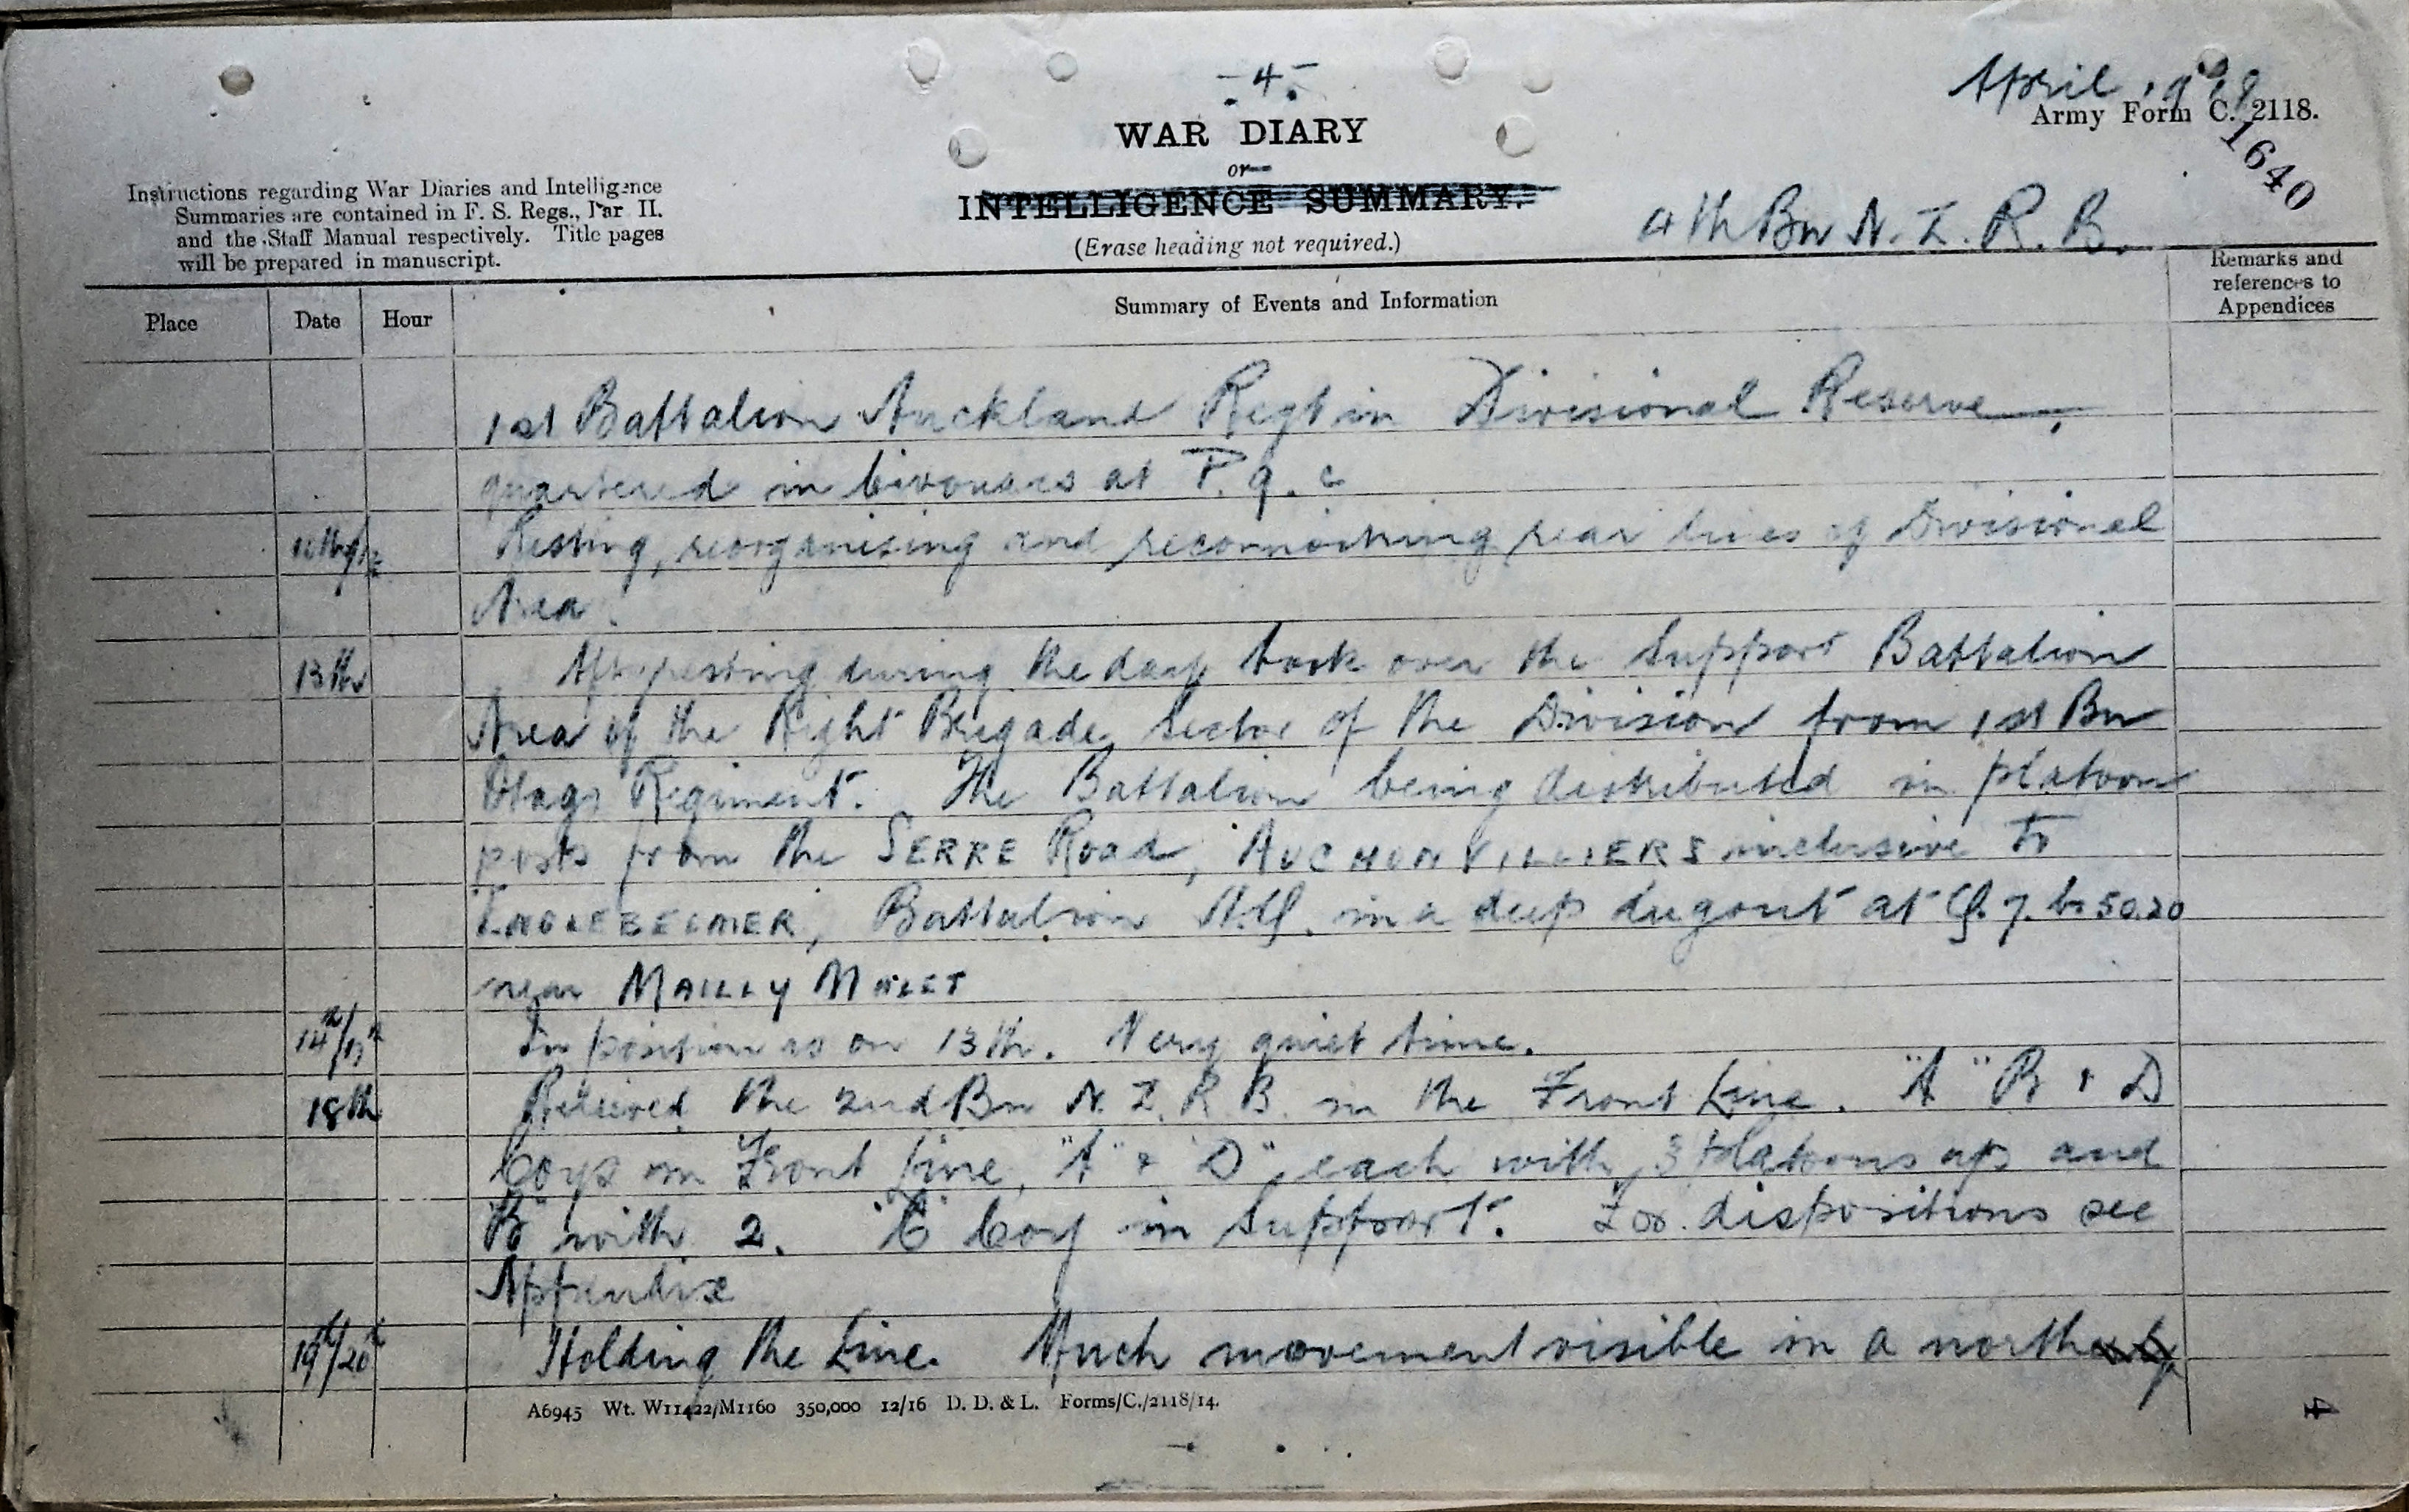 - 4 -
April 1918
WAR DIARY
Army Form C. 2118.
or
1640
INTELLIGENCE SUMMARY.
(Erase heading not required.)
4th Bn N. Z. R. B.
Instructions regarding War Diaries and Intelligence
Summaries are contained in F. S. Regs., Par II.
and the Staff Manual respectively. Title pages
will be prepared in manuscript.
Place Date Hour Summary of Events and Information Remarks and
references to
Appendices
1st Battalion Auckland Regt in Divisional Reserve,
quartered in bivouacs at P. 9. c
Resting, reorganising and reconnoitring rear lines of Divisional
Area.
13th After resting during the day took over the Support Battalion
Area of the Right Brigade Sector of the Division from 1st Bn
Otago Regiment. The Battalion being distributed in platoon
posts from the SERRE Road, AUCHONVILLIERS inclusive to
ENGLEBELMER, Battalion H.Q. in a deep dugout at Q. 7. b. 50.20
near MAILLY MAILET
14th/17th In position as on 13th. Very quiet time.
18th Relieved the 2nd Bn N. Z. R. B. in the Front Line. "A" B & D
Coys in Front Line, "A" & "D" each with 3 platoons up and
"B" with 2. "C" Coy in Support. For dispositions see
Appendix
19th/20th Holding the Line. Much movement visible in a north
A6945 Wt. W11422/M1160 350,000 12/16 D. D. & L. Forms/C./2118/14.
4